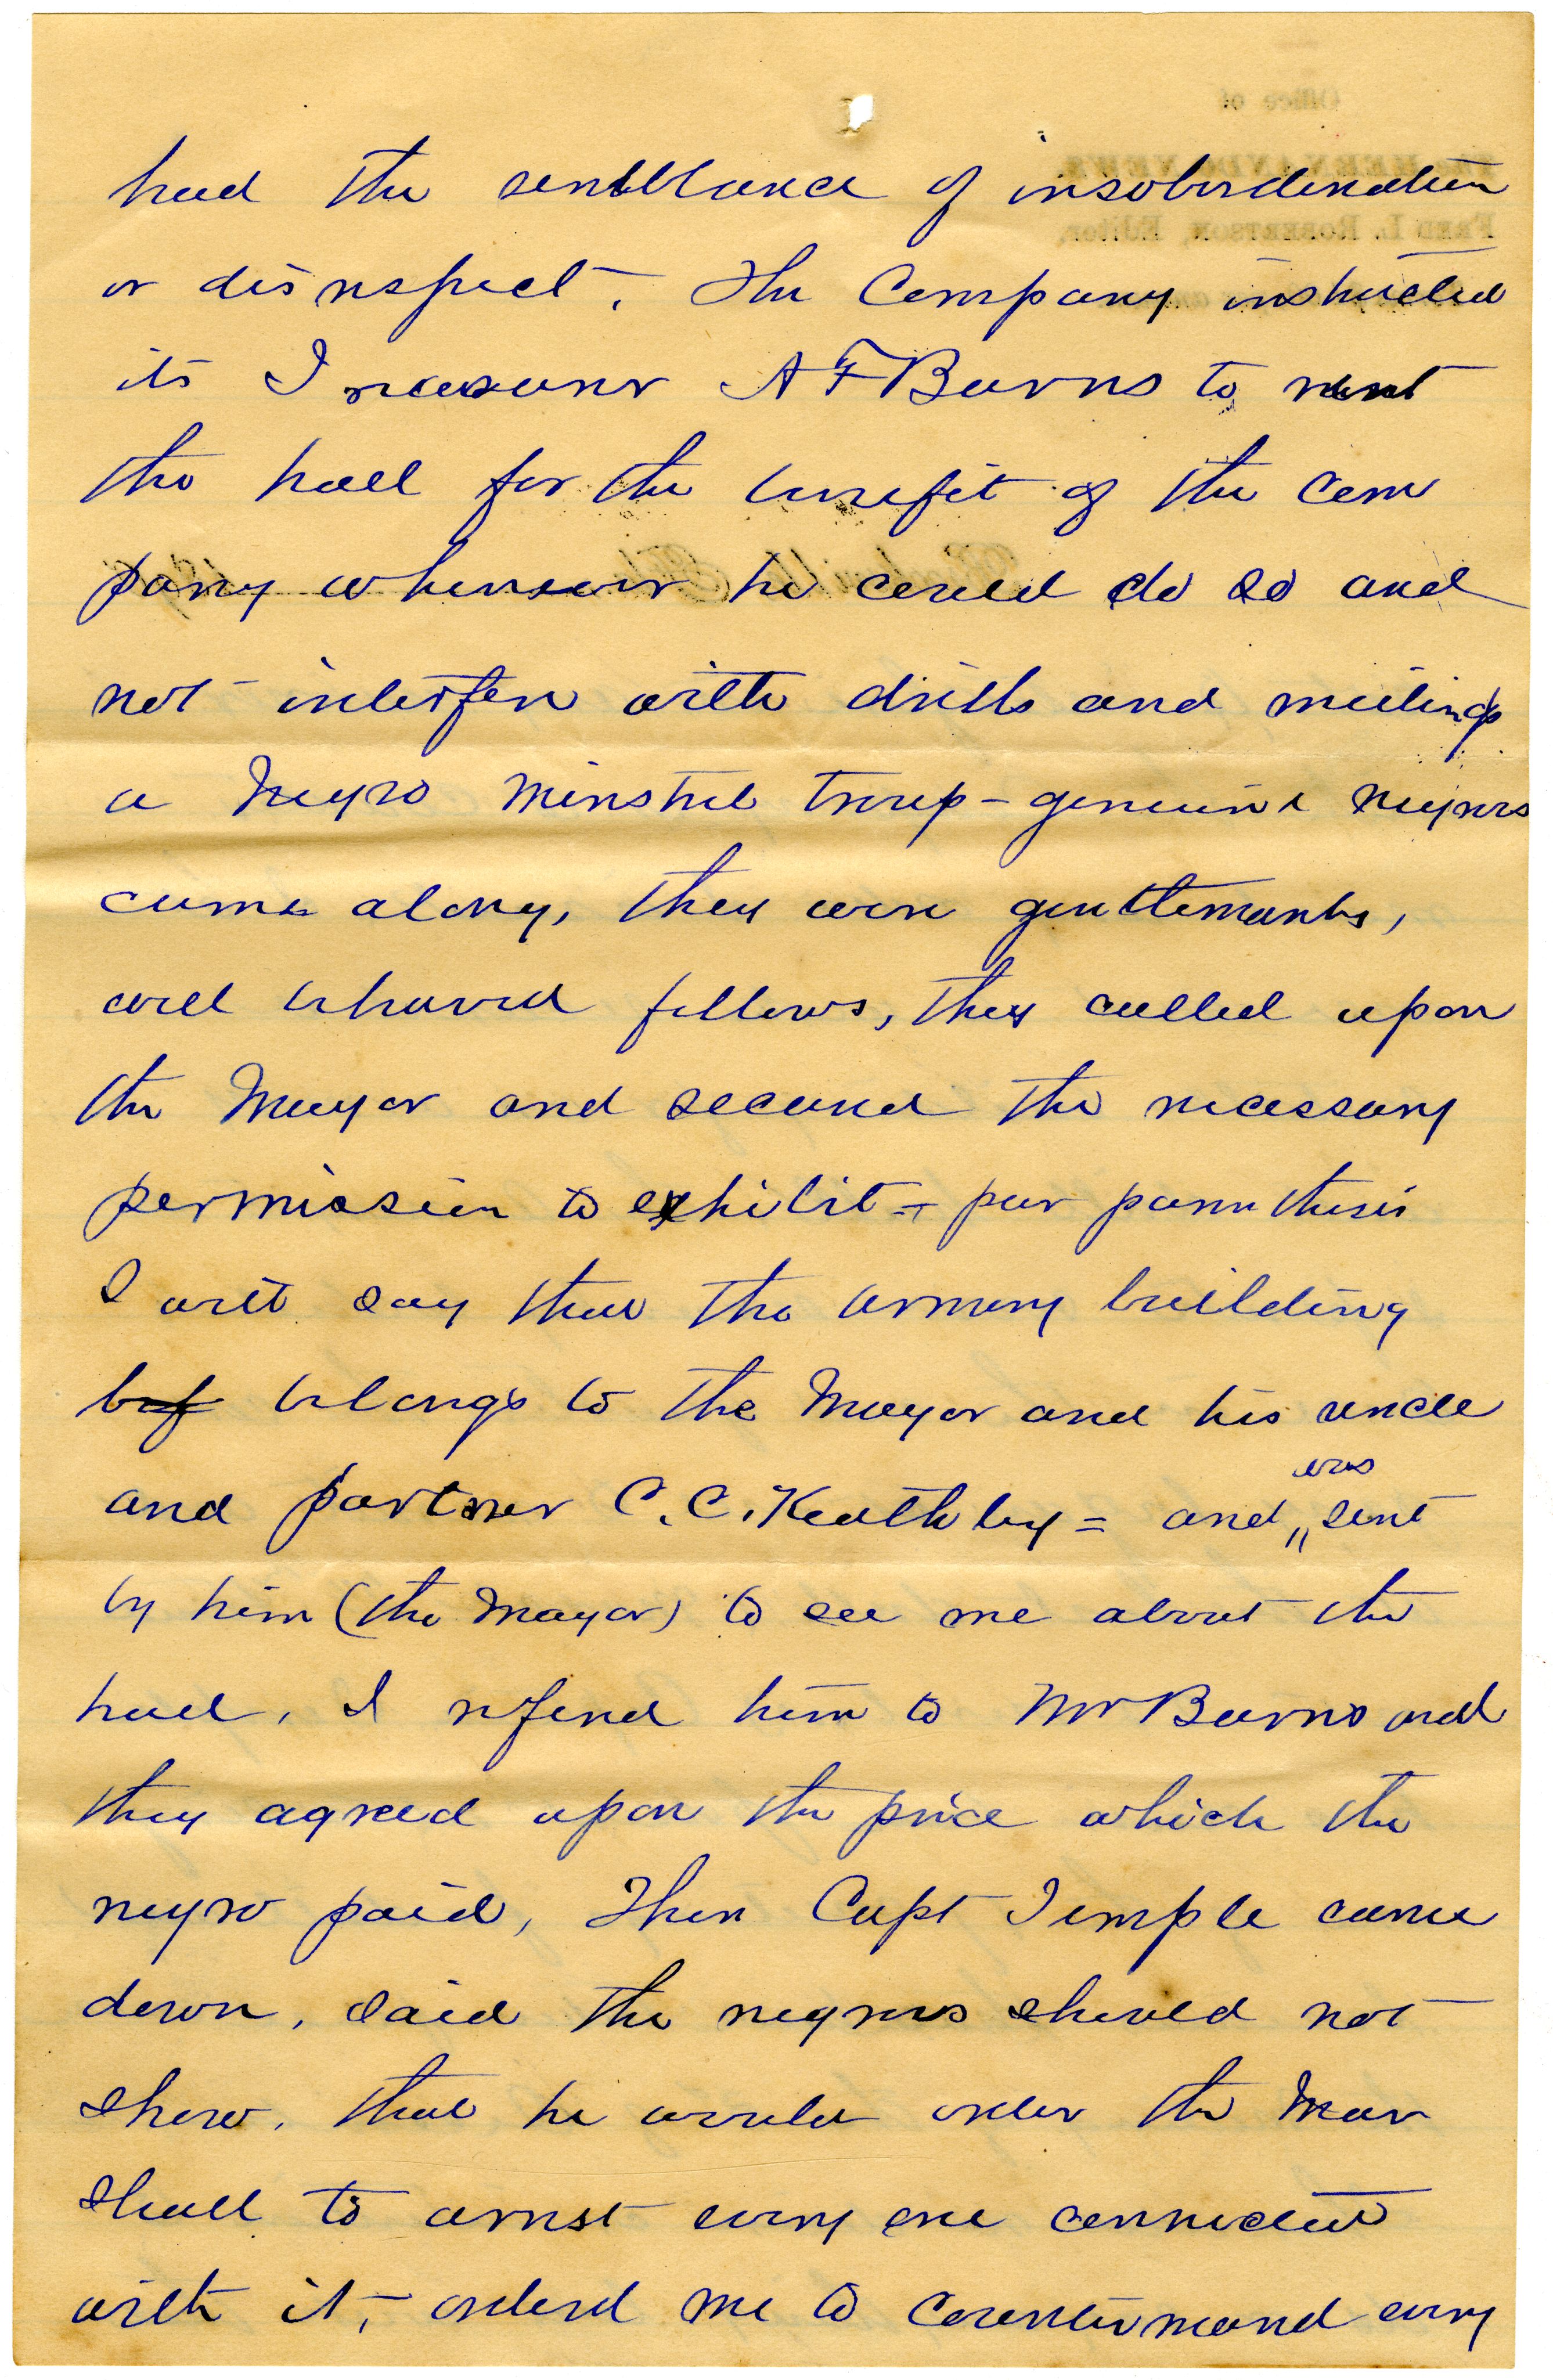 had the semblance of insobordination
or disrespect. The Company instructed
its Treasurer A F Burns to rent
the hall for the benefit of the com
pany whensever he could do so and
not interfere with drills and meetings
a Negro Minstrel troup - genuine negroes
came along, they were gentlemanly,
well behaved fellows, they called upon
the Mayor and secured the necessary
permission to exhibit = par parenthesis
I will say that the armory building
bef belongs to the Mayor and his uncle
was
and partner C. C. Keathley = and " sent
by him (the Mayor) to see me about the
hall. I refered him to Mr Burns and
they agreed upon the price which the
negro paid, Then Capt Temple came
down, said the negroes should not
show, that he would order the Mar
shall to arrest every one connected
with it, - orderd me to countermand every
Office of
The HERNANDO NEWS,
FRED L. ROBERTSON, Editor,